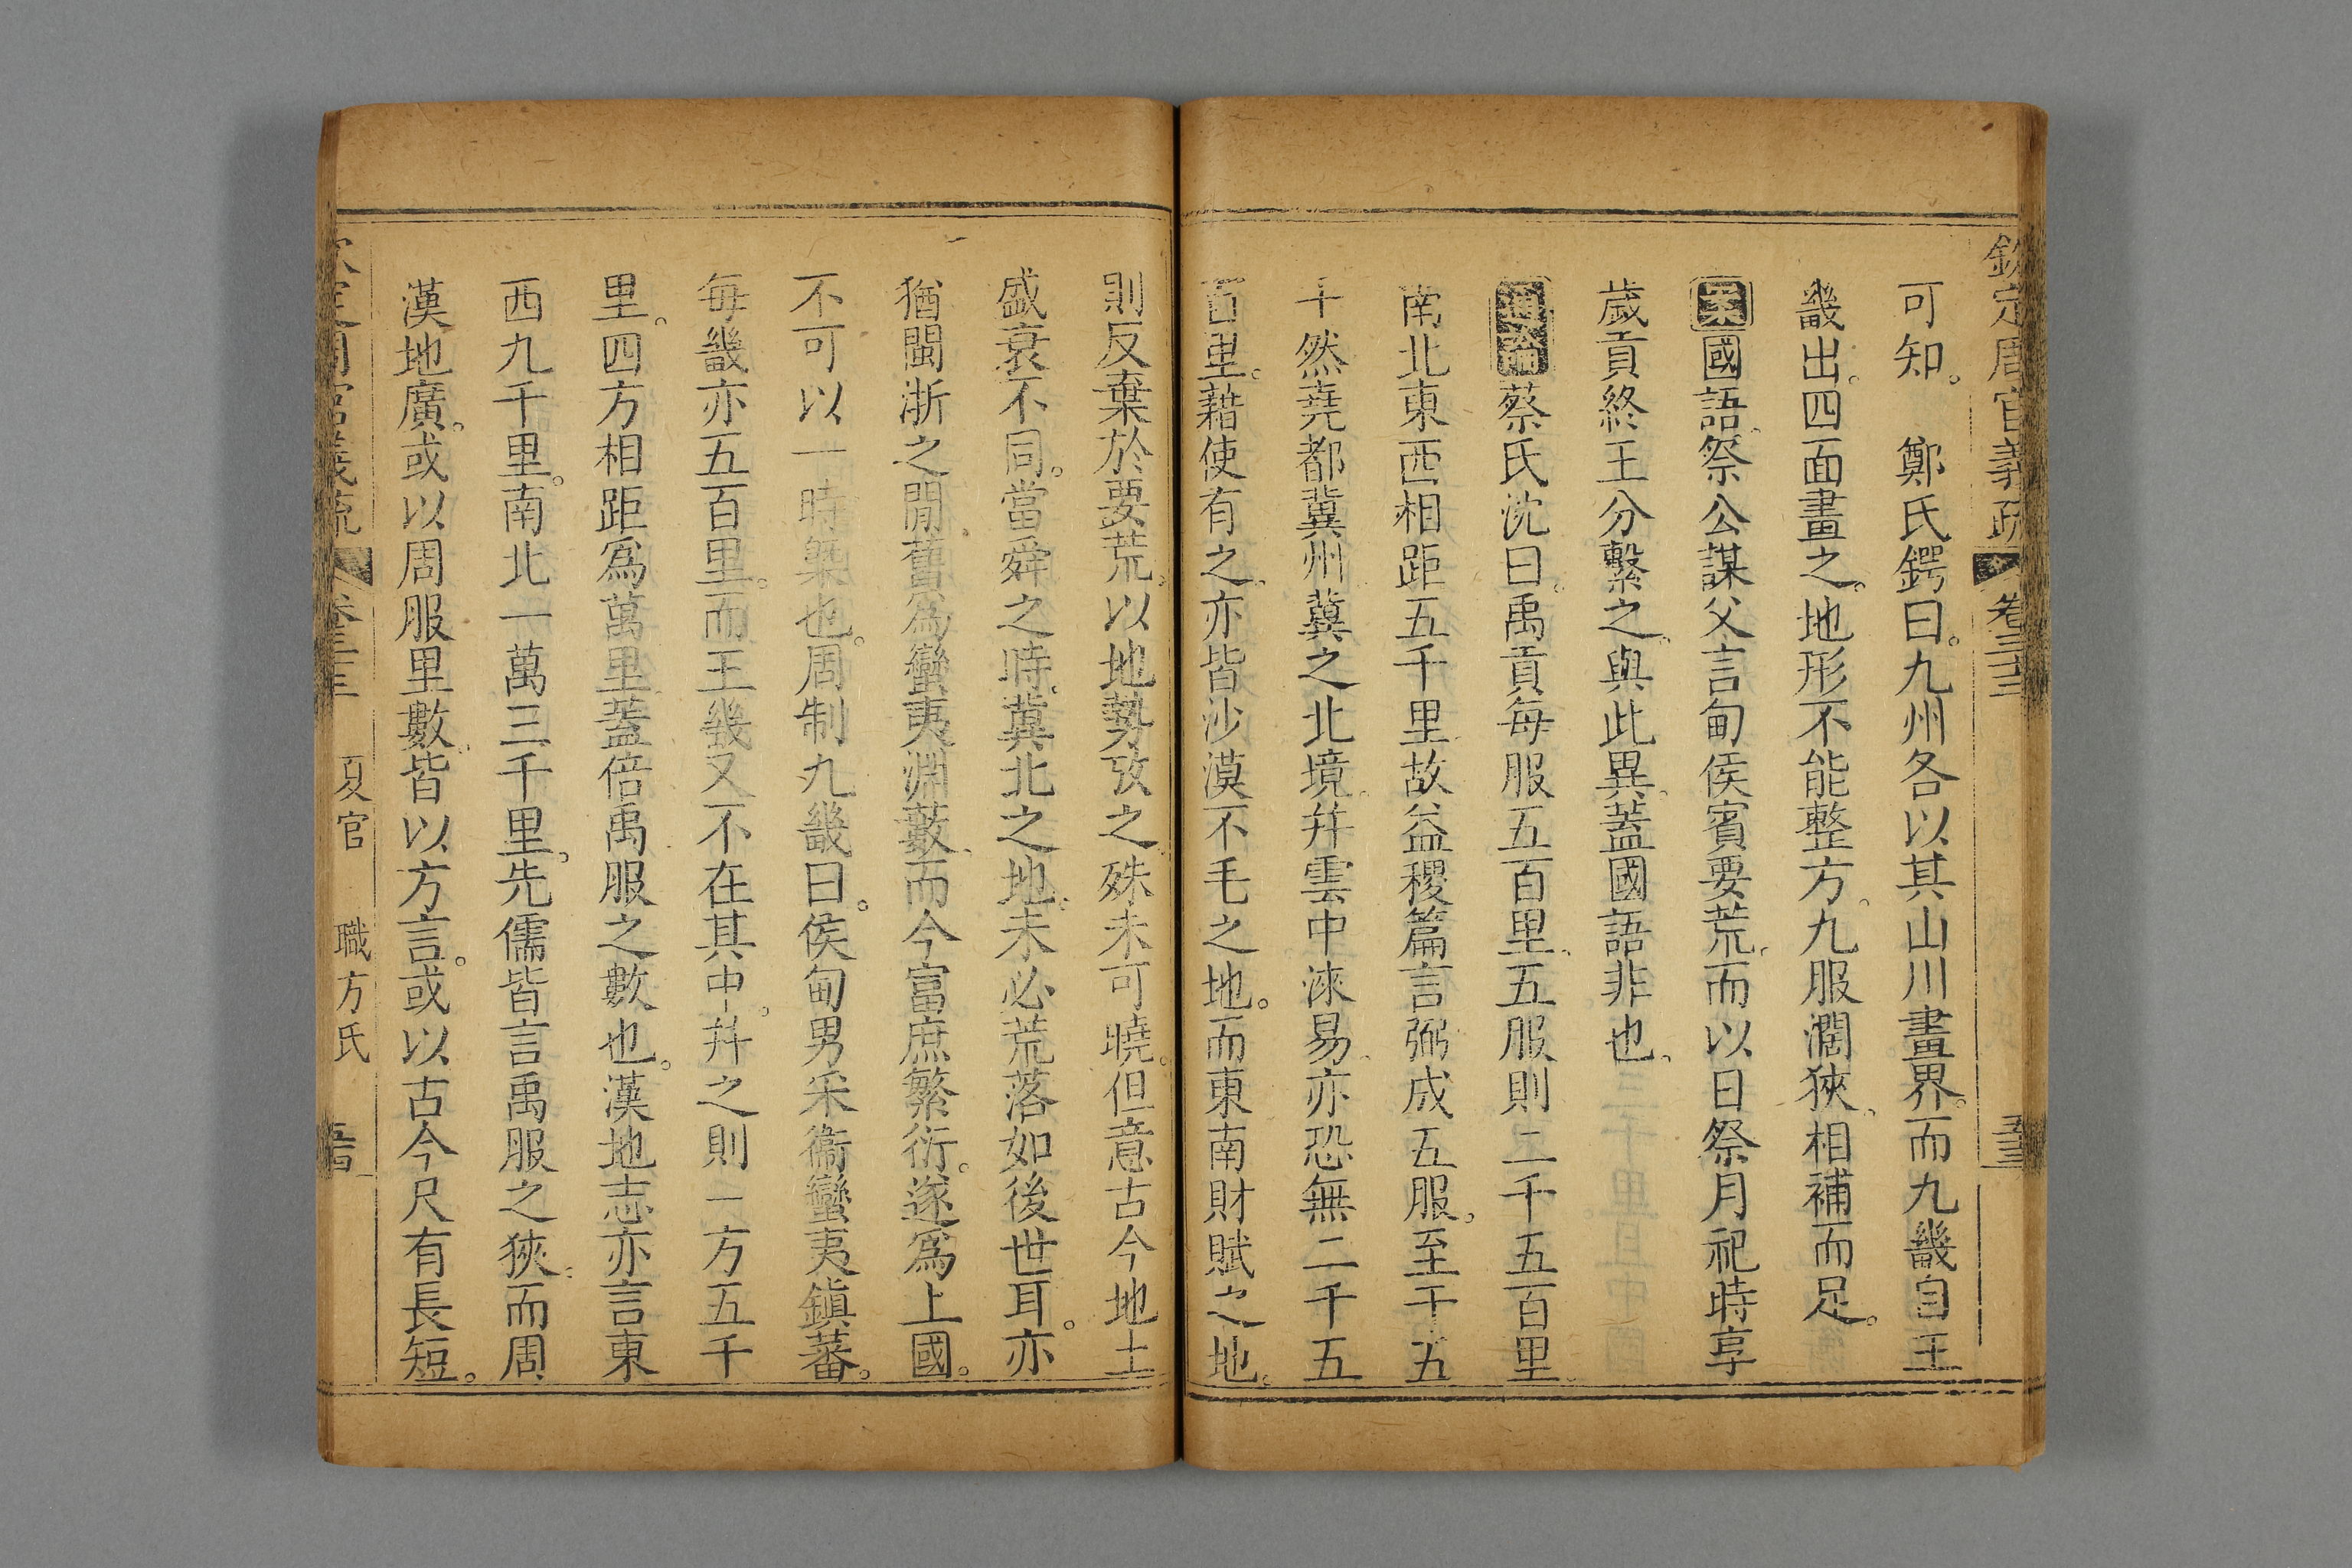 欽定周官義疏 卷三十三
可知。 鄭氏鍔曰。九州各以其山川畫界。而九畿自王
畿出。四面畫之。地形不能整方。九服濶狹、相補而足。
案國語、祭公謀父言甸侯賓要荒、而以日祭月祀時享
歲貢終王分繫之、與此異、蓋國語非也、
通論蔡氏沈曰。禹貢每服五百里、五服則二千五百里。
南北東西相距五千里故益稷篇言弼成五服。至于五
千然堯都冀州、冀之北境、并雲中涿易、亦恐無二千五
百里。藉使有之、亦皆沙漠不毛之地。而東南財賦之地。
則反棄於要荒。以地勢攷之、殊未可曉。但意古今地土
盛衰不同。當舜之時、冀北之地、未必荒落如後世耳。亦
猶閩浙之閒、舊爲蠻夷淵藪、而今富庶繁衍。遂爲上國。
不可以一時槩也。周制九畿曰。侯甸男采衞蠻夷鎭蕃。
每畿亦五百里。而王畿又不在其中。并之則一方五千
里。四方相距爲萬里蓋倍禹服之數也。漢地志亦言東
西九千里。南北一萬三千里。先儒皆言禹服之狹、而周
漢地廣。或以周服里數、皆以方言。或以古今尺有長短。
夏官 職方氏